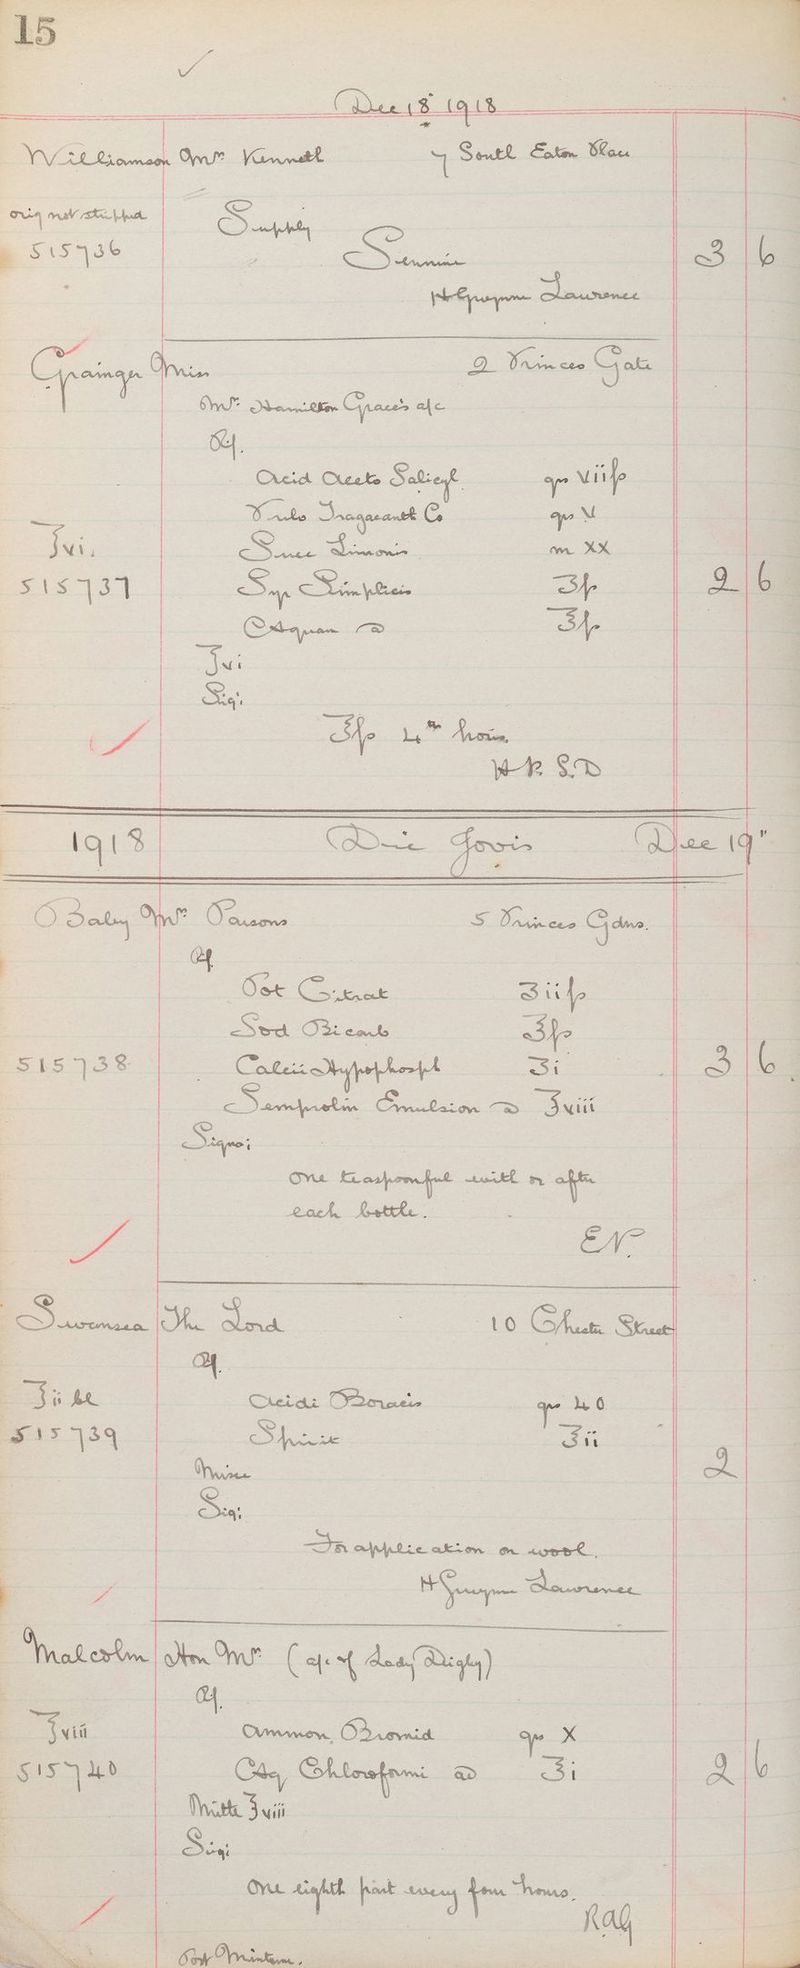 15
Dec 18" 1918
Williamson Mrs Kenneth 7 South Eaton Place
orig not stamped
Supply
515736
Sennine 3 6
H Gwynne Lawrence
Grainger Miss 2 Princes Gate
Mrs Hamilton Grace's a/c
Rx.
Acid Aceto Salicyl grs viiſs
Pulv Tragacanth Co grs V
℥vi. Succ Limonis m xx
515737 Syr Simplicis ʒſs 2 6
Aquam ad ℥ſs
℥vi
Sig:
℥ſs 4th horis
H P. S. D
1918 Die Jovis Dec 19"
Baby Mrs Parsons 5 Princes Gdns.
Rx
Pot Citrat ʒiiſs
Sod Bicarb ʒſs
515738 Calcii Hypophosph ʒi 3 6
Semprolin Emulsion ad ℥viii
Signa:
One teaspoonful with or after
each bottle.
EP.
Swansea The Lord 10 Chester Street
Rx.
℥ii bl Acidi Boracis grs 40
515739 Spirit ℥ii
Misce 2
Sig:
For application on wool.
H Gwynne Lawrence
Malcolm Hon Mrs (a/c of Lady Digby)
Rx.
℥viii Ammon. Bromid grs X
515740 Aq Chloroformi ad ℥i 2 6
Mitte ℥viii
Sig:
One eighth part every four hours.
R.A.G
Post